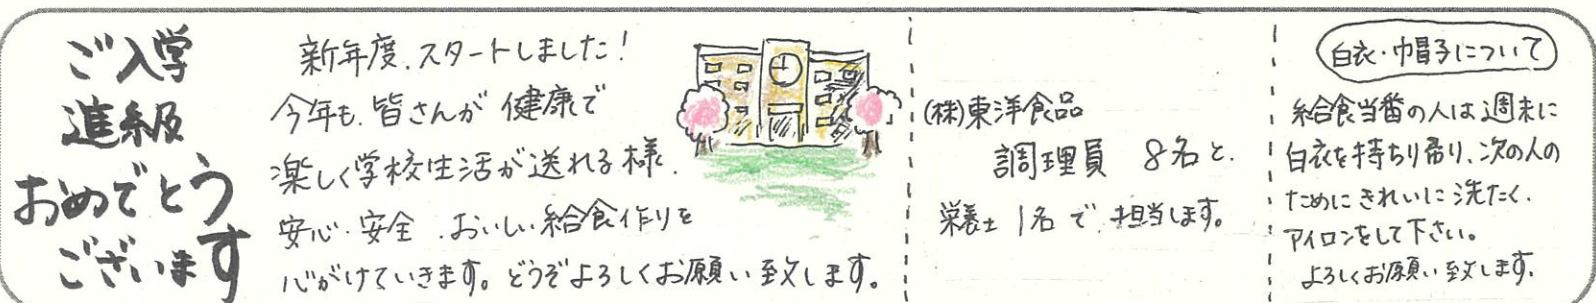 ご入学
進級
おめでとう
ございます
新年度、スタートしました!
今年も、皆さんが健康で
楽しく学校生活が送れる様、
安心・安全、おいしい給食作りを
心がけていきます。どうぞよろしくお願い致します。
(株)東洋食品
調理員 8名と、
栄養士 1名で、担当します。
白衣・巾帽子について
給食当番の人は週末に
白衣を持ちり帰り、次の人の
ためにきれいに洗たく、
アイロンをして下さい。
よろしくお願い致します。